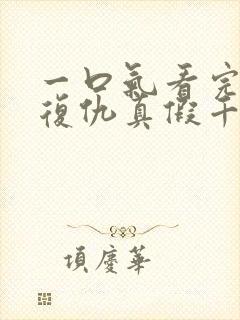 一口氣看完
復仇真假千
項慶華